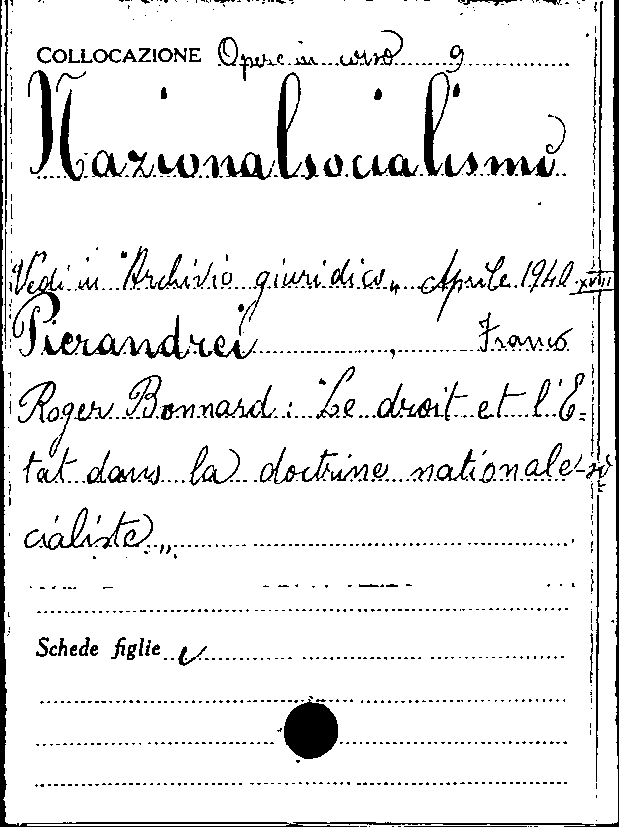 COLLOCAZIONE Opere in corso 9
Nazionalsocialismo
Vedi in "Archivio giuridico„ Aprile 1940 XVIII
Pierandrei, Franco
Roger Bonnard: "Le droit et l'E-
tat dans la doctrine nationale-so
cialiste„
Schede figlie